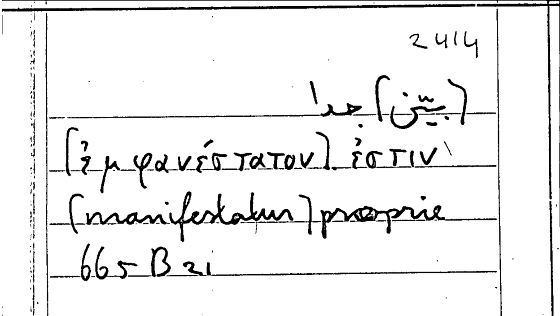 2414
(بيّن) جدا
(ἐμφανέστατον) ἐστιν
(manifestatur) proprie
665 B 21